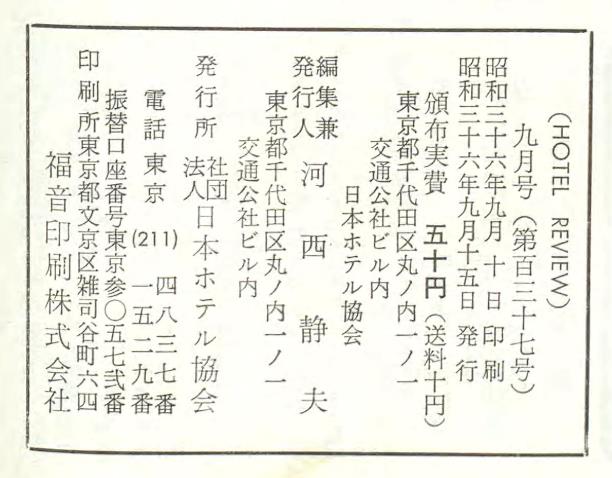 (HOTEL REVIEW)
九月号(第百三十七号)
昭和三十六年九月 十 日 印 刷
昭和三十六年九月十五日 発 行
頒布実費 五十円(送料十円)
東京都千代田区丸ノ内一ノ一
交通公社ビル内
日本ホテル協会
編集兼
発行人 河西静夫
東京都千代田区丸ノ内一ノ一
交通公社ビル内
発行所 社団法人 日本ホテル協会
電話東京(211) 四八三七番
一五二九番
振替口座番号東京参〇五七弐番
印刷所東京都文京区雑司谷町六四
福音印刷株式会社